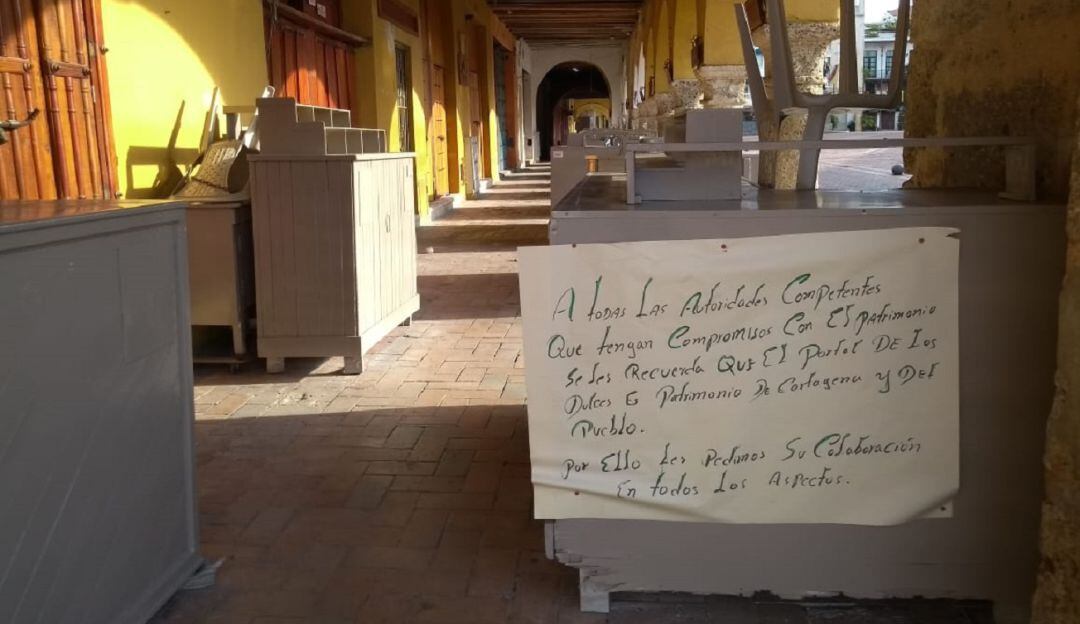 A todas Las Autoridades Competentes
Que tengan Compromisos Con El patrimonio
se les Recuerda Que El Portal De Los
Dulces Es Patrimonio De Cartagena y Del
Pueblo.
por Ello Les Pedimos Su Colaboración
En todos Los Aspectos.